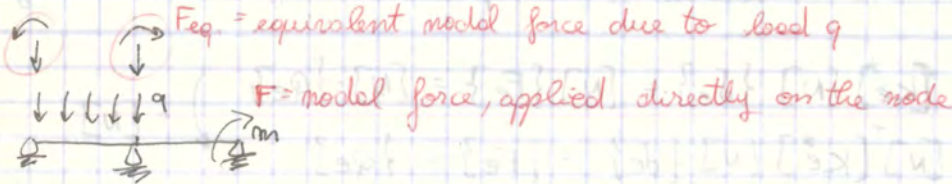 Feq. = equivalent nodal force due to load q
F = nodal force, applied directly on the node
q
m